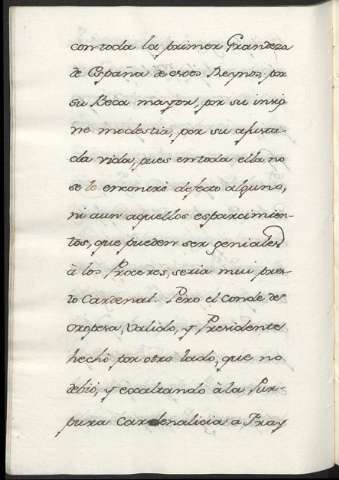 con toda la primer Grandeza
de España de estos Reynos, por
su Beca mayor, por su insig
ne modestia, por su ajusta-
da vida, pues en toda ella no
se le encontró defecto alguno,
ni aun aquellos esparcimien-
tos, que pueden ser geniales
à los Proceres, seria mui pres-
to Cardenal. Pero el Conde de
Oropesa, Valido, y Presidente
hechò por otro lado, que no
debiò, y exaltando à la Pur-
pura Cardenalicia a Fray